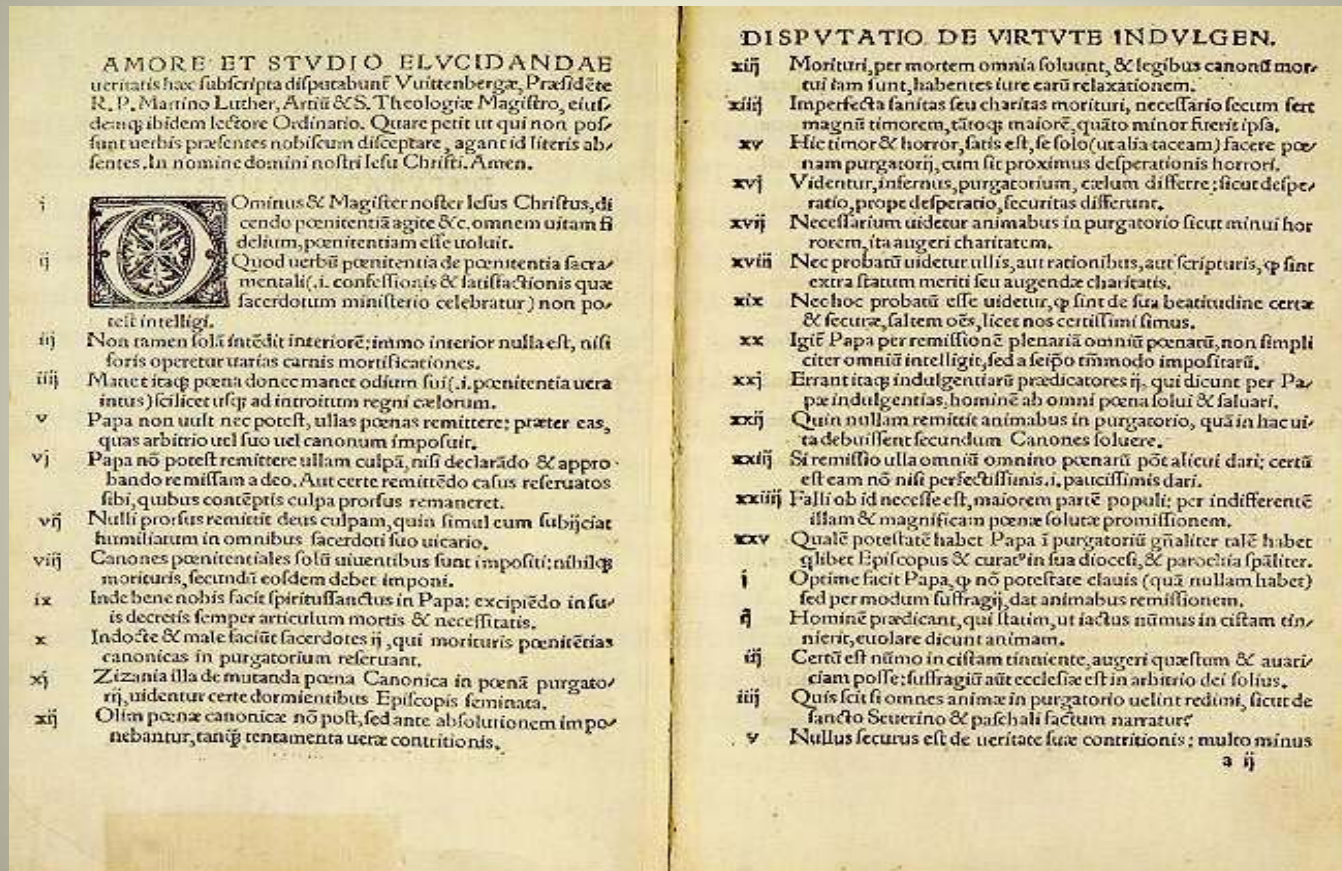 AMORE ET STVDIO ELVCIDANDAE
ueritatis hæc ſubſcripta diſputabunt̃ Vuittenbergæ, Præſidẽte
R. P. Martino Luther, Artiũ & S. Theologiæ Magiſtro, eiuſ-
demq; ibidem lectore Ordinario. Quare petit ut qui non poſ-
ſunt uerbis præſentes nobiſcum diſceptare, agant id literis ab-
ſentes. In nomine domini noſtri Ieſu Chriſti. Amen.
i DOminus & Magiſter noſter Ieſus Chriſtus, di
cendo pœnitentiã agite &c. omnem uitam fi
delium, pœnitentiam eſſe uoluit.
ij Quod uerbũ pœnitentia de pœnitentia ſacra-
mentali (.i. confeſſionis & ſatiſfactionis quæ
ſacerdotum miniſterio celebratur) non po-
teſt intelligi.
iij Non tamen ſolã intẽdit interiorẽ: immo interior nulla eſt, niſi
foris operetur uarias carnis mortificationes.
iiij Manet itaq; pœna donec manet odium ſui (.i. pœnitentia uera
intus) ſcilicet uſq; ad introitum regni cælorum.
v Papa non uult nec poteſt, ullas pœnas remittere: præter eas,
quas arbitrio uel ſuo uel canonum impoſuit.
vj Papa nõ poteſt remittere ullam culpã, niſi declarãdo & appro-
bando remiſſam a deo. Aut certe remittẽdo caſus reſeruatos
ſibi, quibus contẽptis culpa prorſus remaneret.
vij Nulli prorſus remittit deus culpam, quin ſimul eum ſubijciat
humiliatum in omnibus ſacerdoti ſuo uicario.
viij Canones pœnitentiales ſolũ uiuentibus ſunt impoſiti: nihilq;
morituris, ſecundũ eoſdem debet imponi.
ix Inde bene nobis facit ſpirituſſanctus in Papa: excipiẽdo in ſu-
is decretis ſemper articulum mortis & neceſſitatis.
x Indocte & male faciũt ſacerdotes ij, qui morituris pœnitẽtias
canonicas in purgatorium reſeruant.
xj Zizania illa de mutanda pœna Canonica in pœnã purgato-
rij, uidentur certe dormientibus Epiſcopis ſeminata.
xij Olim pœnæ canonicæ nõ poſt, ſed ante abſolutionem impo-
nebantur, tanq̃ tentamenta ueræ contritionis.
DISPVTATIO DE VIRTVTE INDVLGEN.
xiij Morituri, per mortem omnia ſoluunt, & legibus canonũ mor-
tui iam ſunt, habentes iure earũ relaxationem.
xiiij Imperfecta ſanitas ſeu charitas morituri, neceſſario ſecum fert
magnũ timorem, tãtoq; maiorẽ, quãto minor fuerit ipſa.
xv Hic timor & horror, ſatis eſt, ſe ſolo (ut alia taceam) facere pœ-
nam purgatorij, cum ſit proximus deſperationis horrori.
xvj Videntur, infernus, purgatorium, cælum differre: ſicut deſpe-
ratio, prope deſperatio, ſecuritas differunt.
xvij Neceſſarium uidetur animabus in purgatorio ſicut minui hor
rorem, ita augeri charitatem.
xviij Nec probatũ uidetur ullis, aut rationibus, aut ſcripturis, ꝙ ſint
extra ſtatum meriti ſeu augendæ charitatis.
xix Nec hoc probatũ eſſe uidetur, ꝙ ſint de ſua beatitudine certæ
& ſecuræ, ſaltem oẽs, licet nos certiſſimi ſimus.
xx Igit̃ Papa per remiſſionẽ plenariã omniũ pœnarũ, non ſimpli
citer omniũ intelligit, ſed a ſeipſo tm̃modo impoſitarũ.
xxj Errant itaq; indulgentiarũ prædicatores ij, qui dicunt per Pa-
pæ indulgentias, hominẽ ab omni pœna ſolui & ſaluari.
xxij Quin nullam remittit animabus in purgatorio, quã in hac ui-
ta debuiſſent ſecundum Canones ſoluere.
xxiij Si remiſſio ulla omniũ omnino pœnarũ põt alicui dari: certũ
eſt eam nõ niſi perfectiſſimis .i. pauciſſimis dari.
xxiiij Falli ob id neceſſe eſt, maiorem partẽ populi: per indifferentẽ
illam & magnificam pœnæ ſolutæ promiſſionem.
xxv Qualẽ poteſtatẽ habet Papa ĩ purgatoriũ gñaliter talẽ habet
q̃libet Epiſcopus & curatꝰ in ſua dioceſi, & parochia ſpãliter.
i Optime facit Papa, ꝙ nõ poteſtate clauis (quã nullam habet)
ſed per modum ſuffragij, dat animabus remiſſionem.
ij Hominẽ prædicant, qui ſtatim, ut iactus nũmus in ciſtam tin-
nierit, euolare dicunt animam.
iij Certũ eſt nũmo in ciſtam tinniente, augeri quæſtum & auari-
ciam poſſe: ſuffragiũ aũt eccleſiæ eſt in arbitrio dei ſolius.
iiij Quis ſcit ſi omnes animæ in purgatorio uelint redimi, ſicut de
ſancto Seuerino & paſchali factum narratur?
v Nullus ſecurus eſt de ueritate ſuæ contritionis: multo minus
a ij